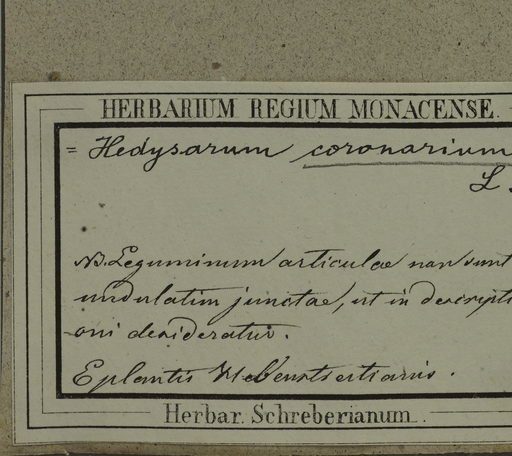 HERBARIUM REGIUM MONACENSE.
= Hedysarum coronarium
L.
NB. Leguminum articulae non sunt
undulatim junctae, ut in descripti
oni desideratur.
E plantis
Herbar. Schreberianum.